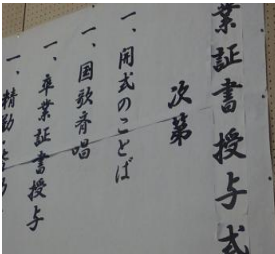 業証書授与式
次第
一、開式のことば
一、国歌斉唱
一、卒業証書授与
一、精勤